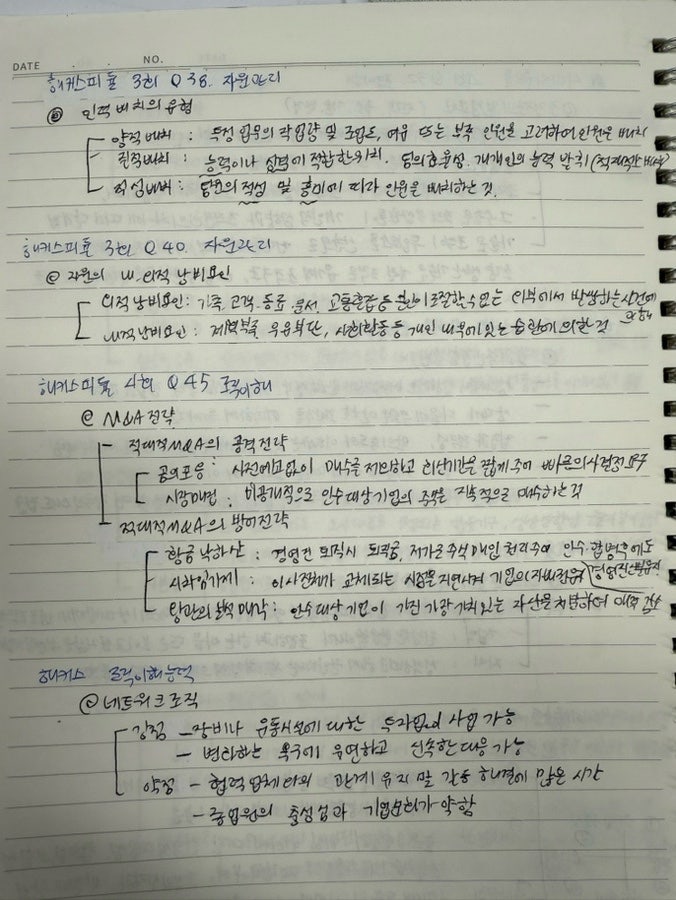 DATE . . NO.
해커스피듈 3회 Q 38. 자원관리
@ 인적 배치의 유형
양적배치 : 특정 업무의 작업량 및 조업도, 여유 또는 부족 인원을 고려하여 인원을 배치
질적배치 : 능력이나 성격에 적합한 위치. 팀의 효율성. 개개인의 능력 발휘 (적재적소 배치)
적성배치 : 팀원의 적성 및 흥미에 따라 인원을 배치하는 것.
해커스피듈 3회 Q 40. 자원관리
@ 자원의 내.외적 낭비요인
외적낭비요인 : 가족. 고객. 동료. 문서. 교통혼잡 등 본인이 조절할 수 없는 외부에서 발생하는 시간에 의해
내적낭비요인 : 계획부족, 우유부단, 사회활동 등 개인 내부에 있는 습관에 의한 것
해커스피듈 4회 Q 45 조직이해
@ M&A 전략
적대적 M&A의 공격전략
곰의 포옹 : 사전예고없이 매수를 제의하고 회신기간을 짧게 주어 빠른 의사결정 요구
시장매집 : 비공개적으로 인수대상기업의 주식을 지속적으로 매수하는 것
적대적 M&A의 방어전략
황금 낙하산 : 경영진 퇴직시 퇴직금, 저가로 주식 매입 권리 주어 인수.합병 후에도
시차임기제 : 이사 전체가 교체되는 시점을 지연시켜 기업의 지배적 경영진 신분 유지
왕관의 보석 매각 : 인수대상기업이 가진 가장 가치있는 자산을 처분하여 매력 감소
해커스 조직이해능력
@ 네트워크 조직
강점 - 장비나 유통시설에 대한 투자없이 사업 가능
- 변화하는 욕구에 유연하고 신속한 대응 가능
약점 - 협력업체와의 관계 유지 및 갈등 해결에 많은 시간
- 종업원의 충성심과 기업문화가 약함